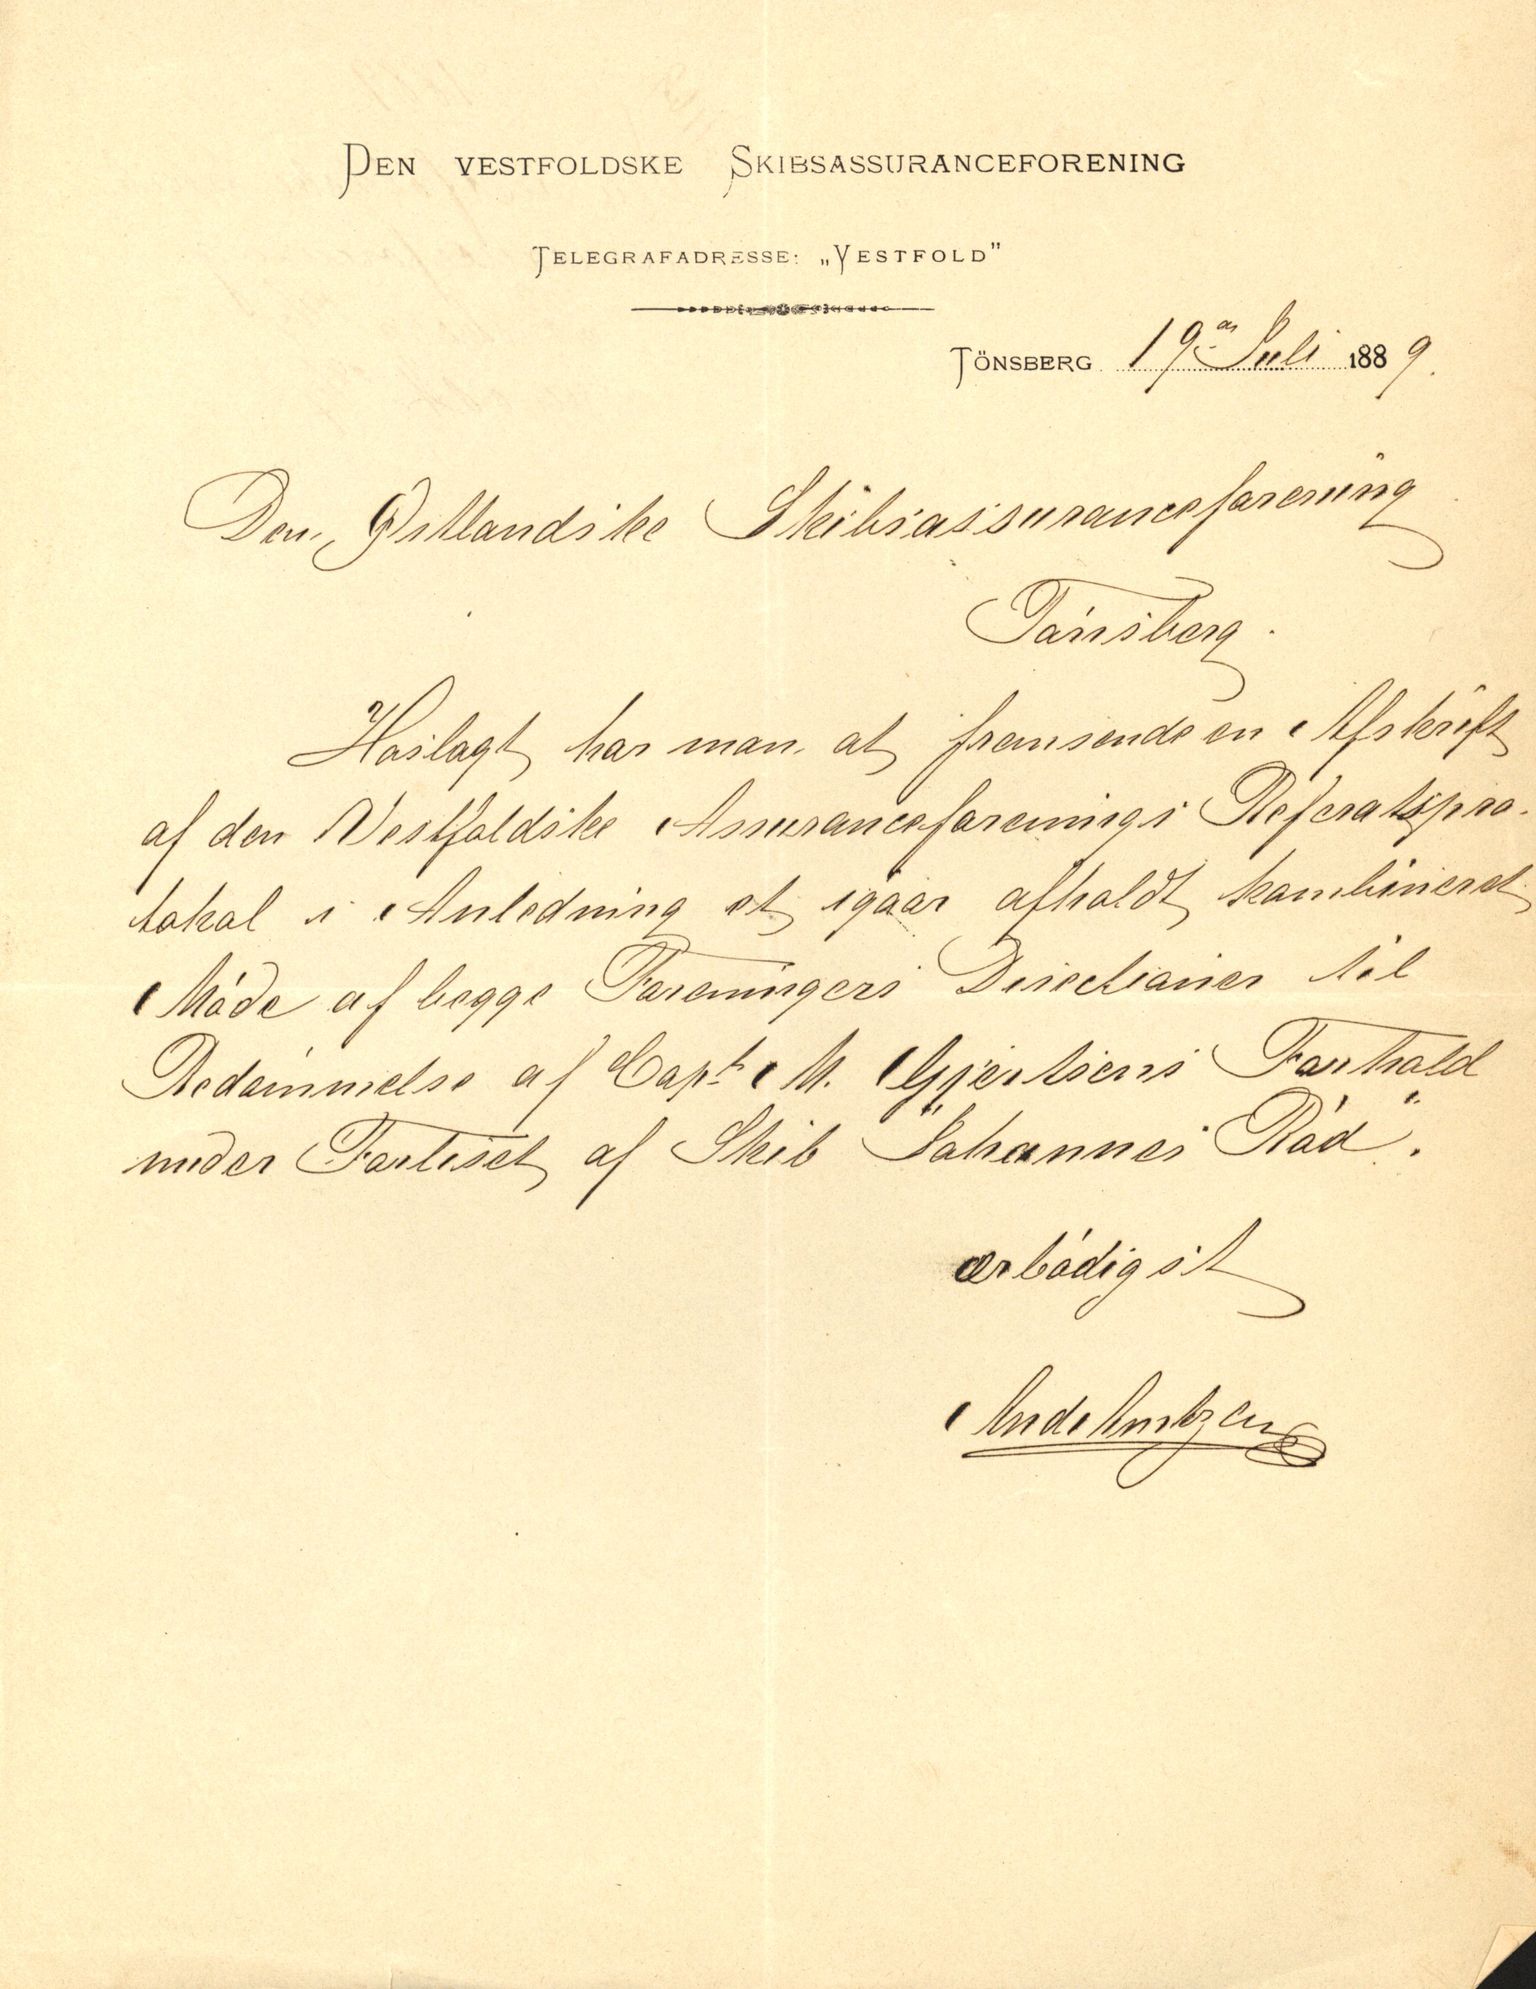 Den vestfoldske Skibsassuranceforening
Telegrafadresse: „Vestfold"
Tönsberg 19de Juli 1889.
Den Østlandske Skibsassuranceforening
Tønsberg.
Hoslagt har man at fremsende en Afskrift
af den Vestfoldske Assuranceforenings Referatspro-
tokol i Anledning et igaar afholdt kombineret
Møde af begge Foreningers Directioner til
Bedømmelse af Capt. M. Gjertsens Forhold
under Forliset af Skib "Johannes Rød".
ærbødigst